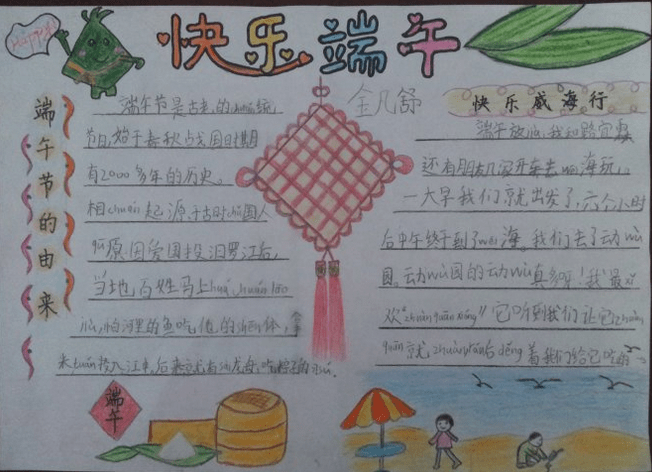 Happy
快乐端午
全凡舒
端午节的由来
端午节是古老的chuán统
节日,始于春秋战国时期
有2000多年的历史。
相chuán起源于古时候国人
qū原因爱国投汨罗江后,
当地百姓马上huá chuán lāo
jiù,怕河里的鱼吃他的shēn体,
米tuán投入江中,后来就有
端午
快乐威海行
端午放假,我和
还有朋友几家开车去wēi海玩,
一大早我们就出发了,六个小时
后中午终于到了wēi海。我们去了动wù
园。动wù园的动wù真多呀!我最xǐ
欢“zhuàn quān xióng”它听到我们让它zhuàn
quān就zhuàn wán后děng着我们给它吃的